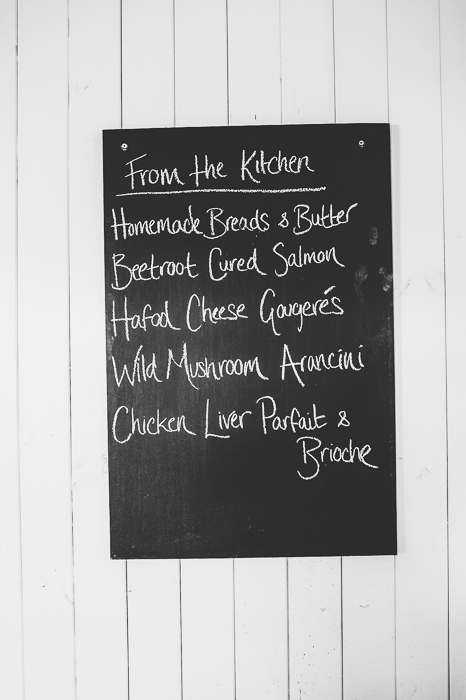 From the Kitchen
Homemade Breads & Butter
Beetroot Cured Salmon
Hafod Cheese Gougerés
Wild Mushroom Arancini
Chicken Liver Parfait &
Brioche